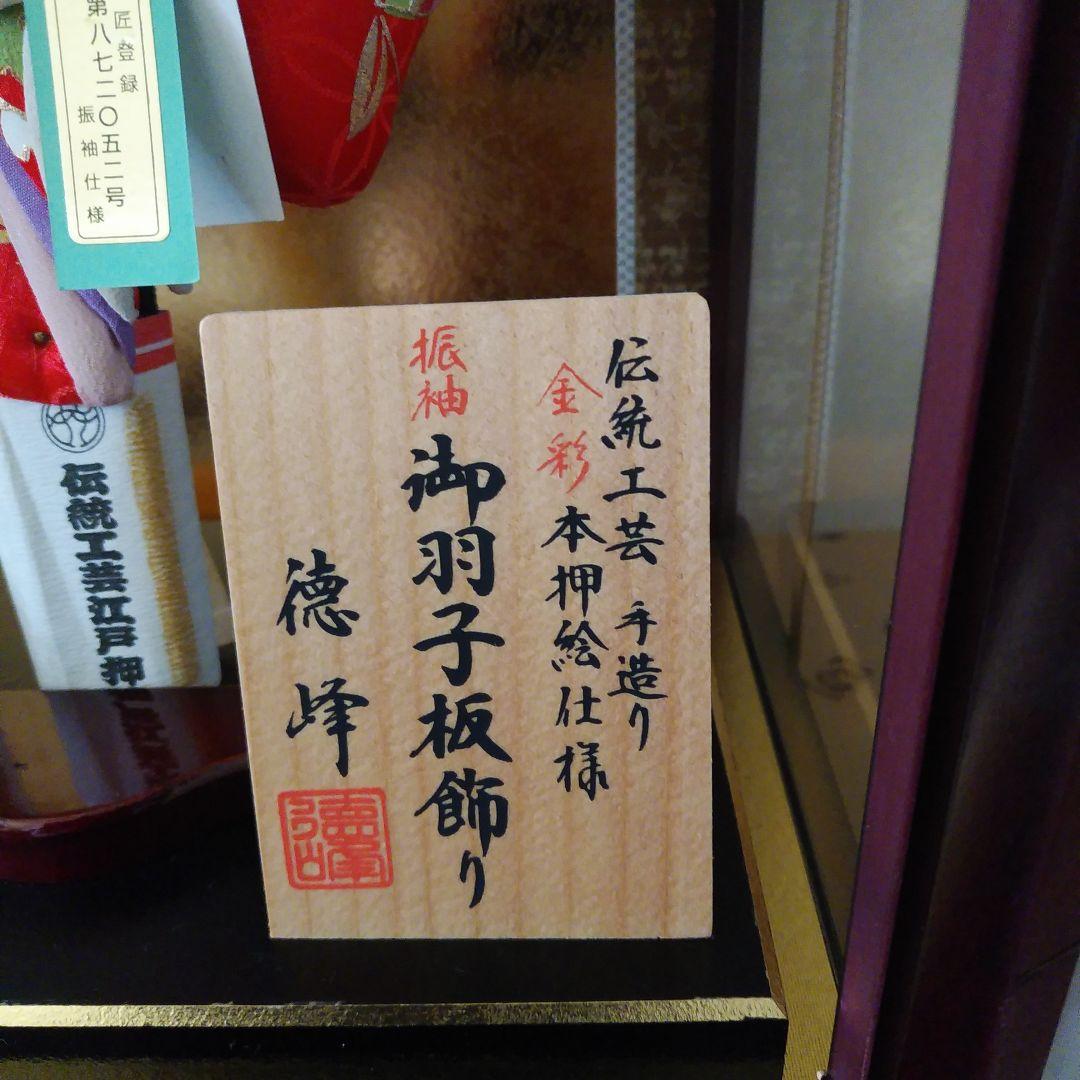 伝統工芸 手造り
金彩本押絵仕様
振袖御羽子板飾り
徳峰
徳峰
匠登録
第八七二〇五二号
振袖仕様
伝統工芸江戸押